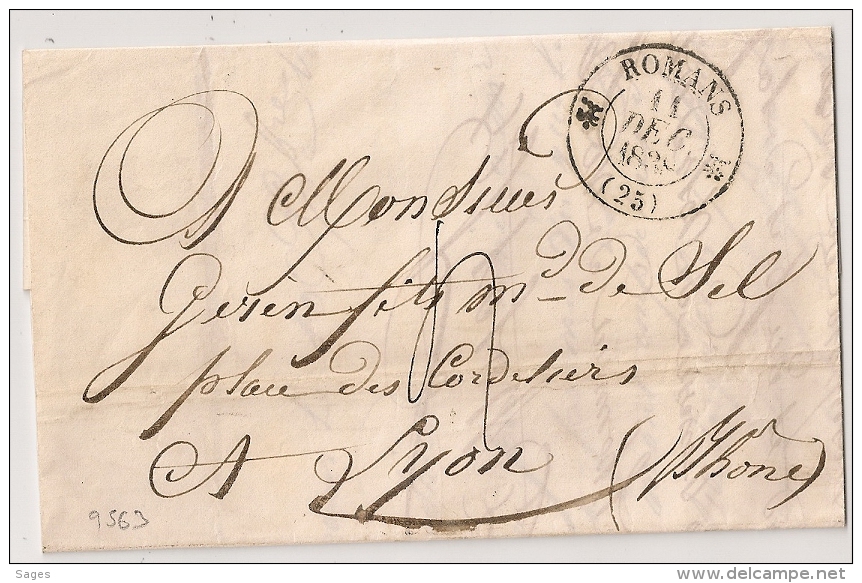 ROMANS
11
DEC.
(25)
A Monsieur
Gerin fils md de Sel
place des Cordeliers
A Lyon (Rhône)
9563
Sages
www.delcampe.net